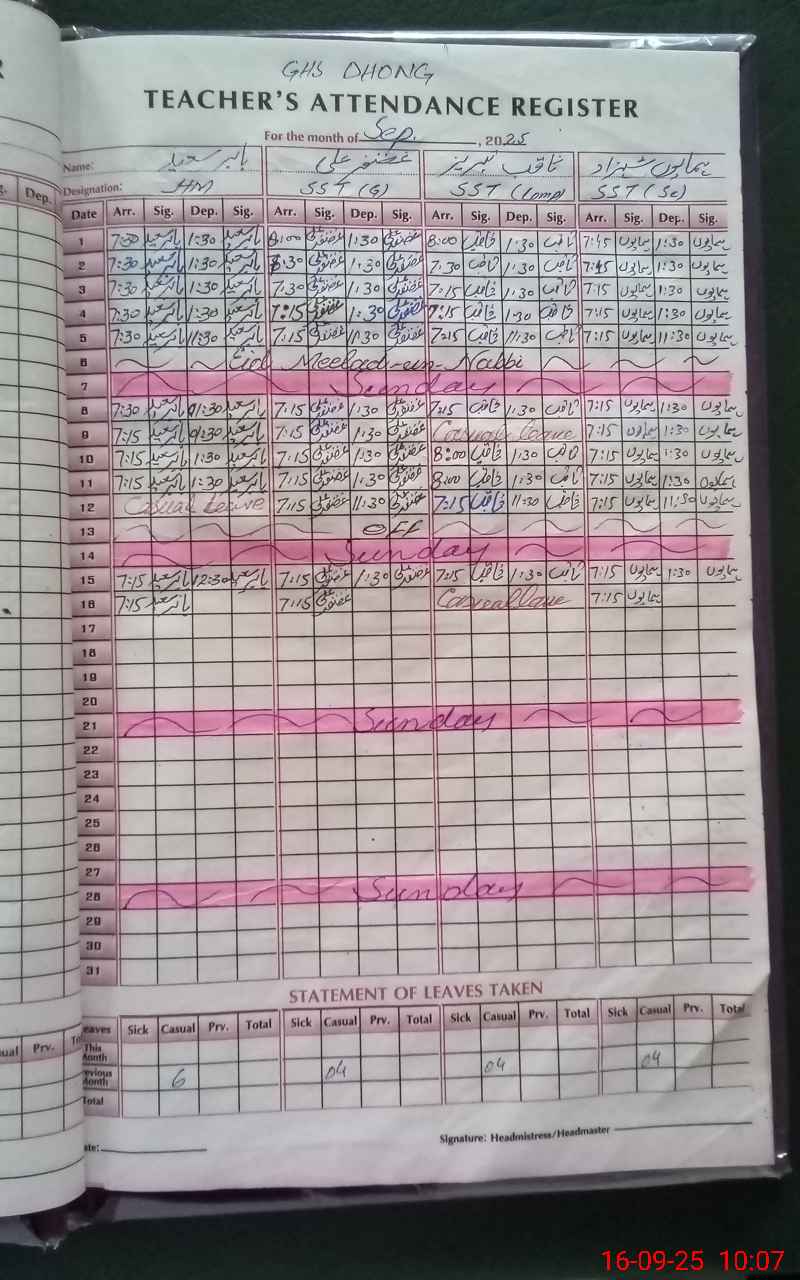 GHS DHONG
TEACHER'S ATTENDANCE REGISTER
For the month of Sep. , 2025
Name: بابر سعید غضنفر علی ثاقب تبریز ہمایوں شہزاد
Designation: HM SST (G) SST (Comp) SST (Sc)
Date Arr. Sig. Dep. Sig. Arr. Sig. Dep. Sig. Arr. Sig. Dep. Sig. Arr. Sig. Dep. Sig.
1 7:30 بابر سعید 1:30 بابر سعید 8:00 غضنفر علی 1:30 غضنفر علی 8:00 ثاقب 1:30 ثاقب 7:45 ہمایوں 1:30 ہمایوں
2 7:30 بابر سعید 1:30 بابر سعید 7:30 غضنفر علی 1:30 غضنفر علی 7:30 ثاقب 1:30 ثاقب 7:45 ہمایوں 1:30 ہمایوں
3 7:30 بابر سعید 1:30 بابر سعید 7:30 غضنفر علی 1:30 غضنفر علی 7:15 ثاقب 1:30 ثاقب 7:15 ہمایوں 1:30 ہمایوں
4 7:30 بابر سعید 1:30 بابر سعید 7:15 غضنفر علی 1:30 غضنفر علی 7:15 ثاقب 1:30 ثاقب 7:15 ہمایوں 1:30 ہمایوں
5 7:30 بابر سعید 11:30 بابر سعید 7:15 غضنفر علی 11:30 غضنفر علی 7:15 ثاقب 11:30 ثاقب 7:15 ہمایوں 11:30 ہمایوں
6 Eid Meelad-un-Nabbi
7 Sunday
8 7:30 بابر سعید 1:30 بابر سعید 7:15 غضنفر علی 1:30 غضنفر علی 7:15 ثاقب 1:30 ثاقب 7:15 ہمایوں 1:30 ہمایوں
9 7:15 بابر سعید بابر سعید 7:15 غضنفر علی 1:30 غضنفر علی Casual leave 7:15 ہمایوں 1:30 ہمایوں
10 7:15 بابر سعید 1:30 بابر سعید 7:15 غضنفر علی 1:30 غضنفر علی 8:00 ثاقب 1:30 ثاقب 7:15 ہمایوں 1:30 ہمایوں
11 7:15 بابر سعید 1:30 بابر سعید 7:15 غضنفر علی 1:30 غضنفر علی 8:00 ثاقب 1:30 ثاقب 7:15 ہمایوں 1:30 ہمایوں
12 Casual Leave 7:15 غضنفر علی 11:30 غضنفر علی 7:15 ثاقب 11:30 ثاقب 7:15 ہمایوں 11:30 ہمایوں
13 OFF
14 Sunday
15 7:15 بابر سعید 12:30 بابر سعید 7:15 غضنفر علی 1:30 غضنفر علی 7:15 ثاقب 1:30 ثاقب 7:15 ہمایوں 1:30 ہمایوں
16 7:15 بابر سعید 7:15 غضنفر علی Casual leave 7:15 ہمایوں
17
18
19
20
21 Sunday
22
23
24
25
26
27
28 Sunday
29
30
31
STATEMENT OF LEAVES TAKEN
eaves Sick Casual Prv. Total Sick Casual Prv. Total Sick Casual Prv. Total Sick Casual Prv. Total
This Month
revious Month 6 04 04 04
Total
ate:
Signature: Headmistress/Headmaster
g. Dep.
ual Prv. To
16-09-25 10:07